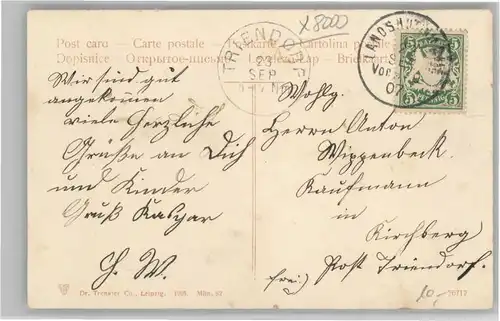 x 8000
Post card — Carte postale — Postkarte — Cartolina postale
Dopisnice — Открытое письмо — Levelező-Lap — Briefkaart
TRIENDORF
23
SEP
LANDSHUT
07
BAYERN
5 5
5 5
Wir sind gut
angekommen
viele Herzliche
Grüße an Dich
und Kinder
Gruß Kaspar
H. W.
Wohlg.
Herrn Anton
Wippenbeck
Kaufmann
in
Kirchberg
Post Triendorf.
frei)
Dr. Trenkler Co., Leipzig. 1905. Mün. 67
20717
10,-